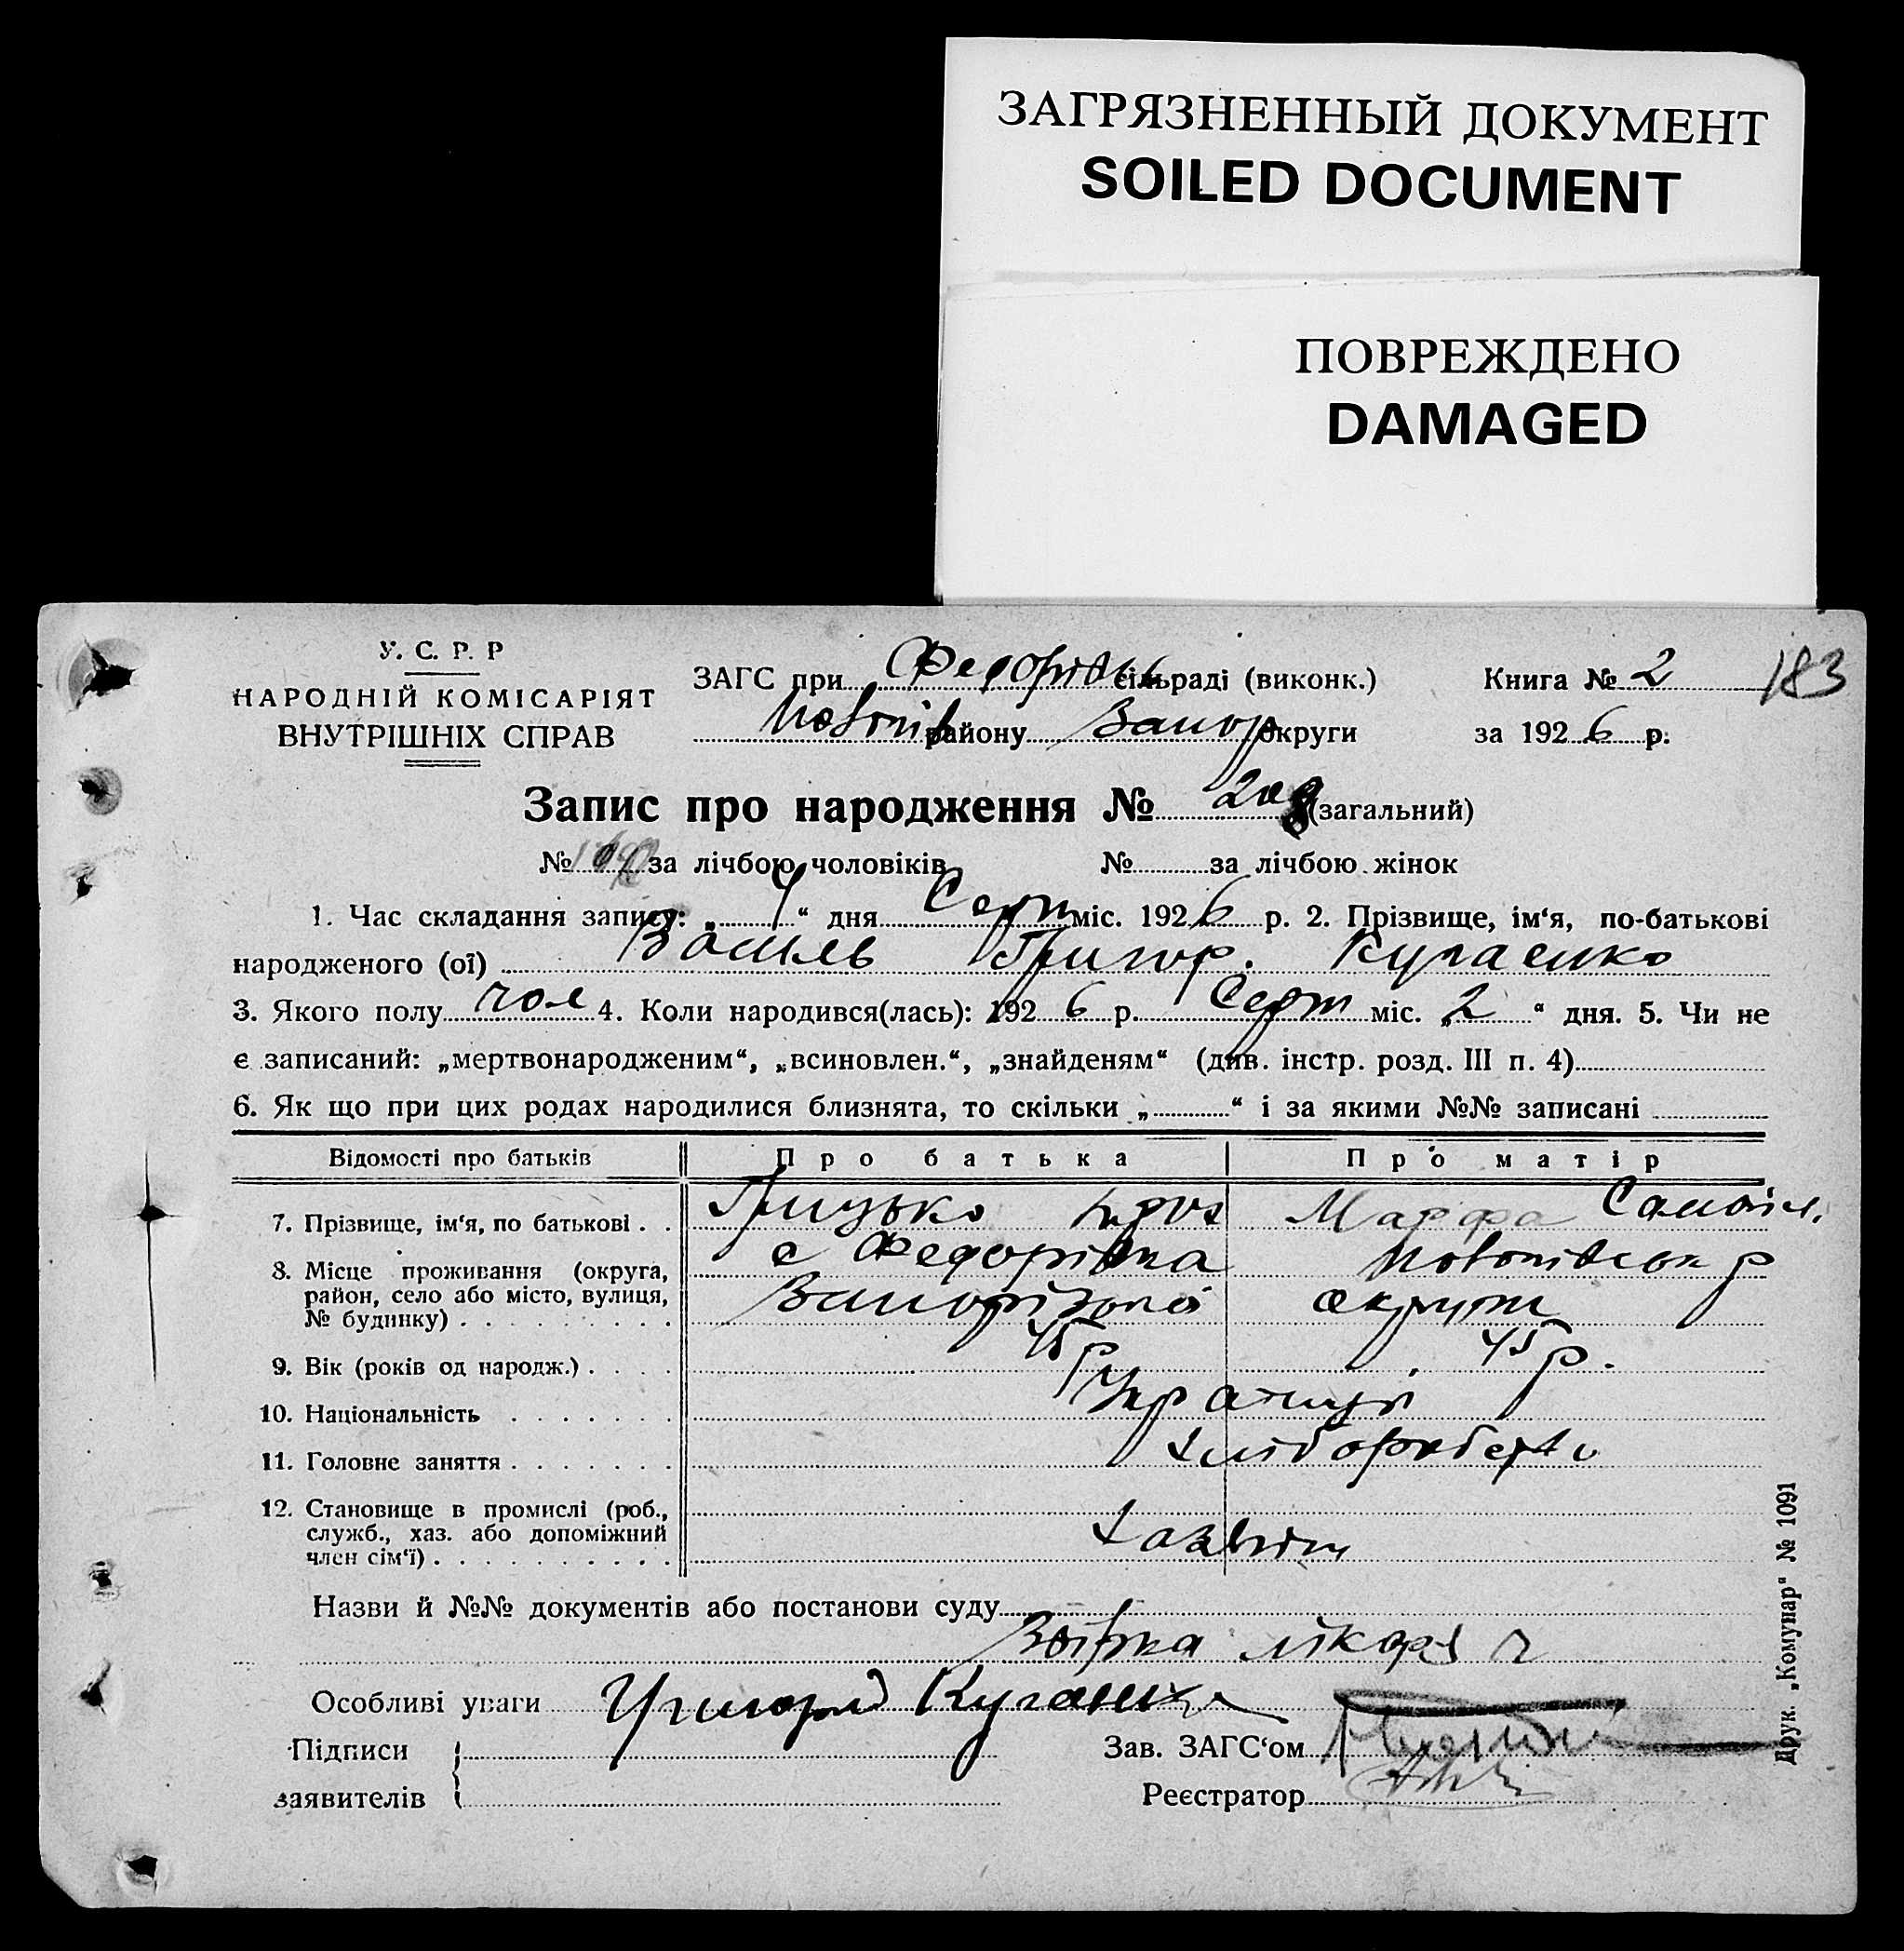 ЗАГРЯЗНЕННЫЙ ДОКУМЕНТ
SOILED DOCUMENT
ПОВРЕЖДЕНО
DAMAGED
У. С. Р. Р
НАРОДНІЙ КОМІСАРІЯТ
ВНУТРІШНІХ СПРАВ
ЗАГС при Федорівськ сільраді (виконк.)
району Запор округи
Книга № 2 183
за 1926 р.
Запис про народження № (загальний)
№ за лічбою чоловіків № за лічбою жінок
1. Час складання запису: „4“ дня Серп міс. 1926 р. 2. Прізвище, ім‘я, по-батькові
народженого (ої) Василь Григор.
3. Якого полу чол 4. Коли народився(лась): 1926 р. Серп міс. „2“ дня. 5. Чи не
є записаний: „мертвонародженим“, „всиновлен.“, „знайденям“ (див. інстр. розд. III п. 4)
6. Як що при цих родах народилися близнята, то скільки „ “ і за якими №№ записані
Відомості про батьків Про батька Про матір
7. Прізвище, ім‘я, по батькові . . Грицько Марфа Самойл.
8. Місце проживання (округа, с Федорівка р
район, село або місто, вулиця, Запорізької округи
№ будинку) . . . . . . . . .
9. Вік (років од народж.) . . . . 45 р 45 р.
10. Національність . . . . . . . Українці
11. Головне заняття . . . . . . . Хлібороберти
12. Становище в промислі (роб.,
служб., хаз. або допоміжний
член сім‘ї) . . . . . . . . . .
Назви й №№ документів або постанови суду
лікаря
Особливі уваги
Підписи
заявителів
Зав. ЗАГС‘ом
Реєстратор
Друк. „Комунар“ № 1091